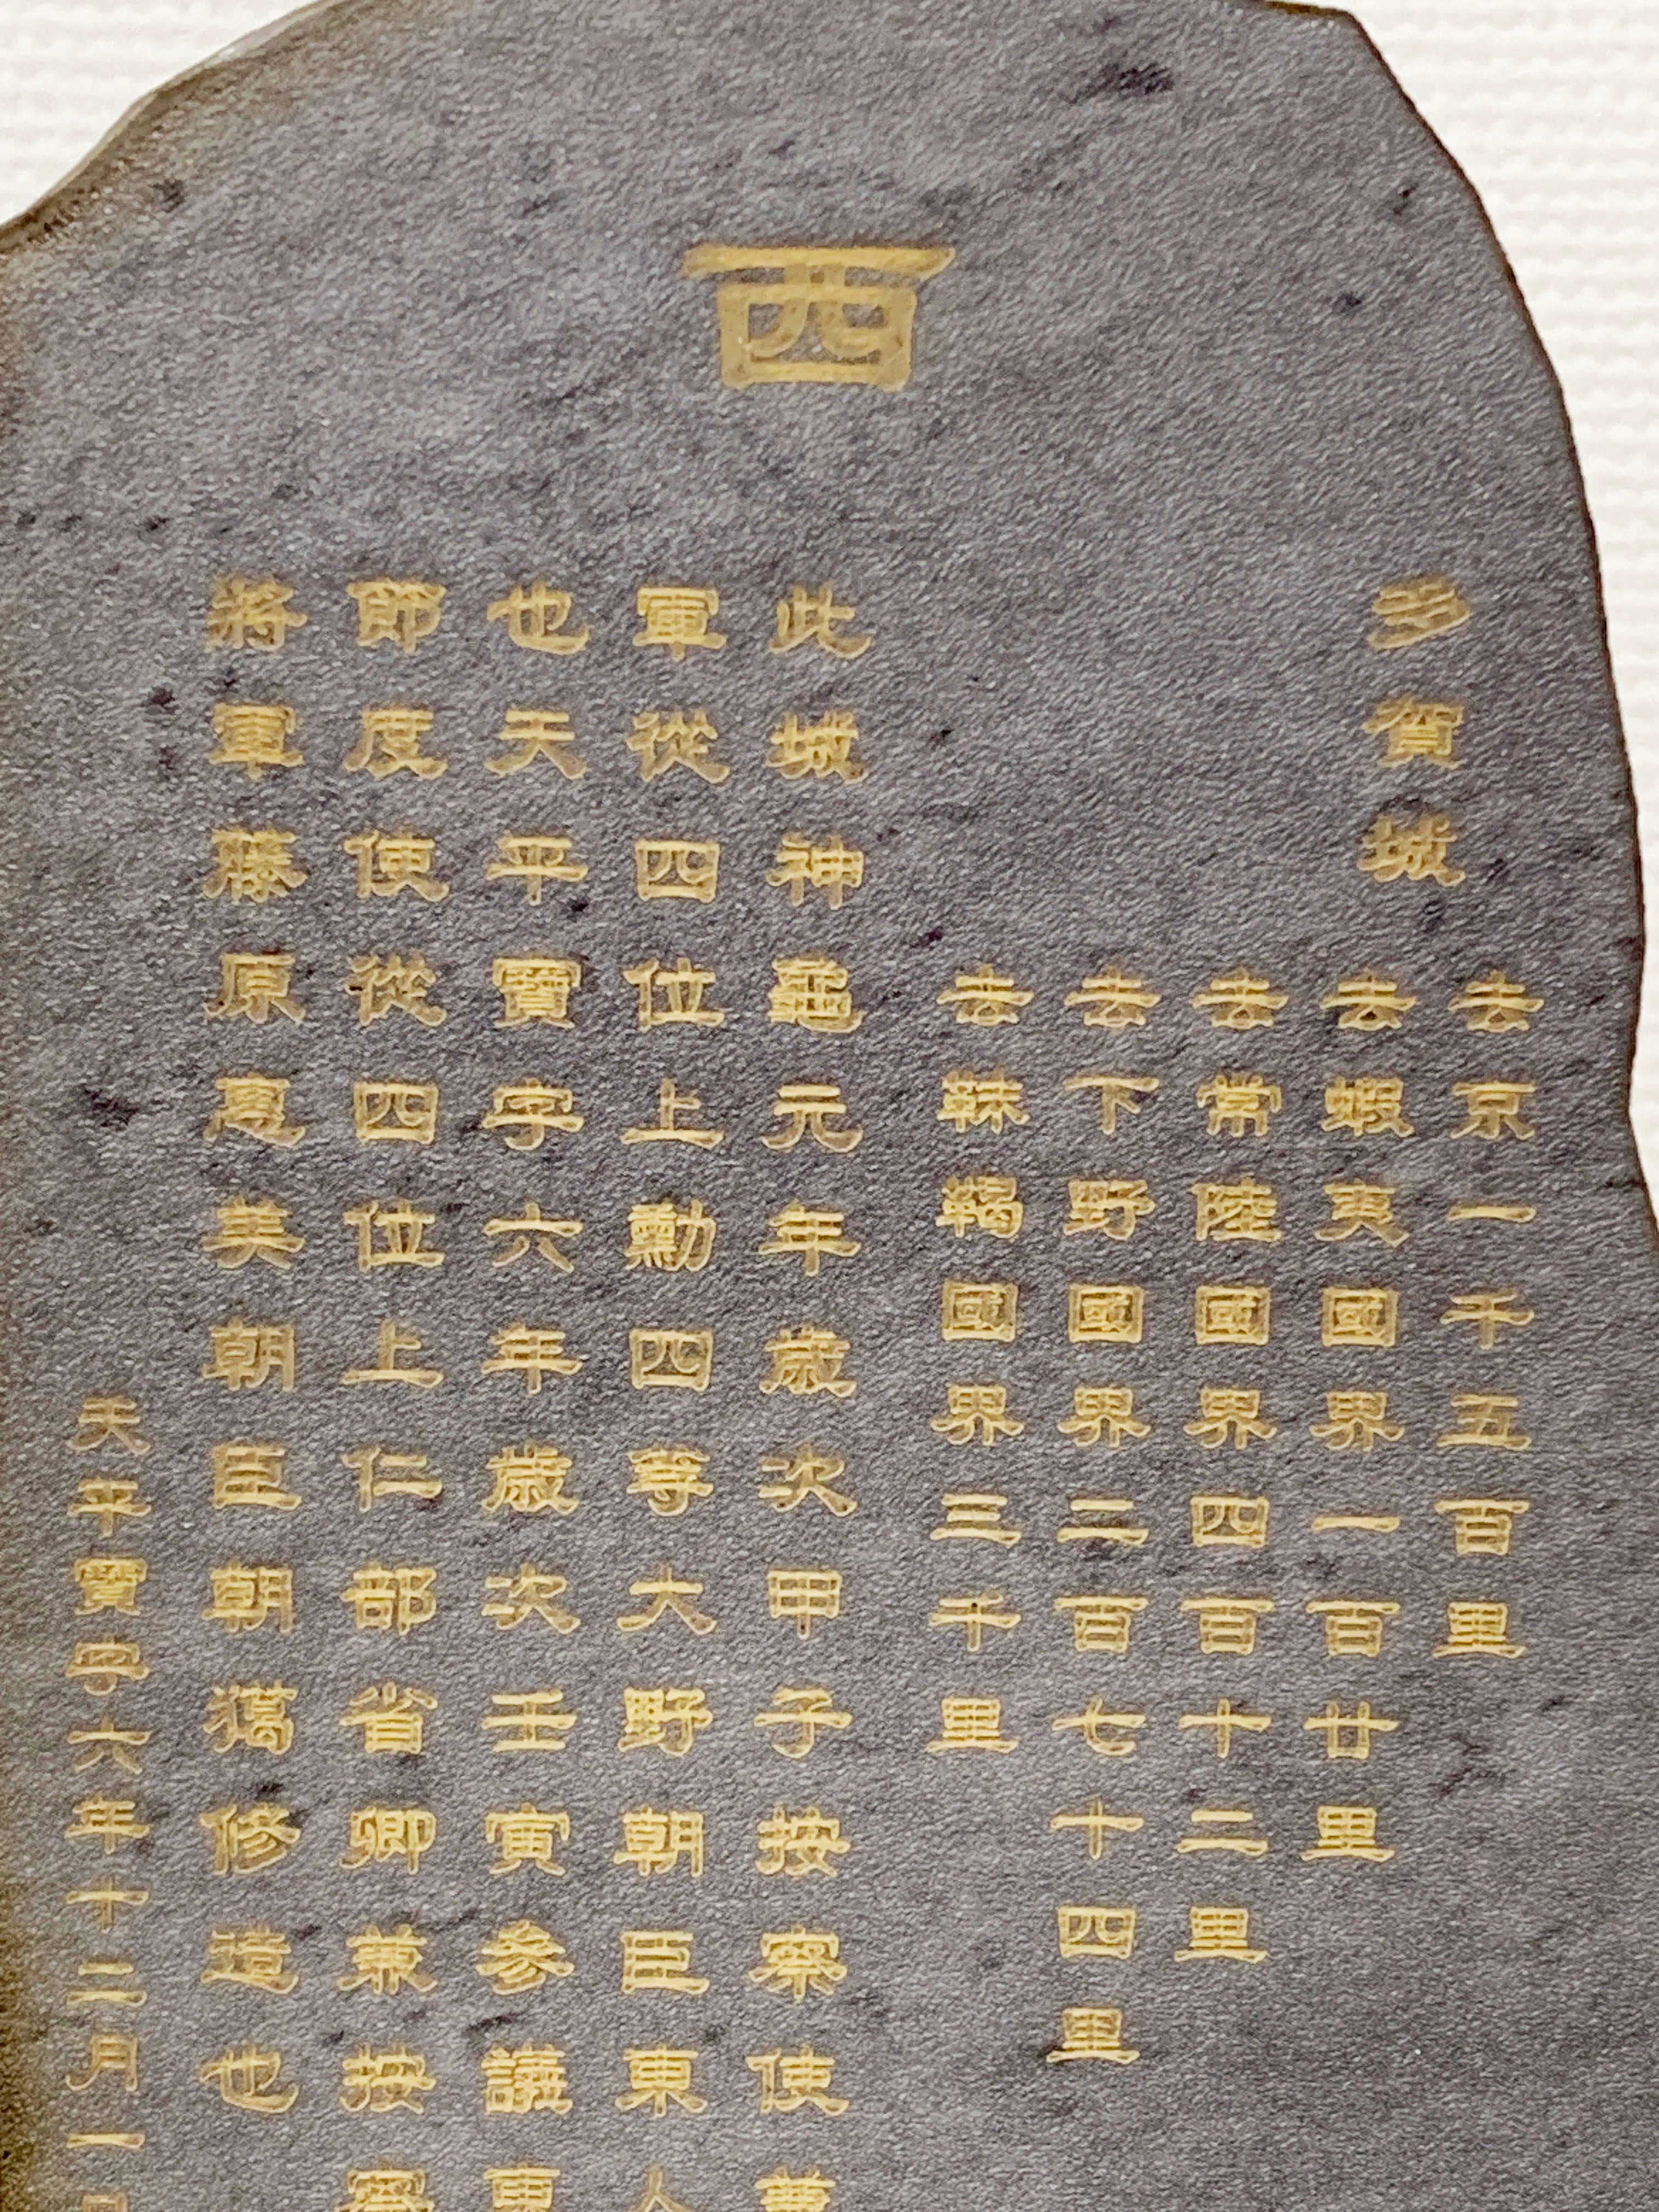 西
多賀城
去京一千五百里
去蝦夷國界一百廿里
去常陸國界四百十二里
去下野國界二百七十四里
去靺鞨國界三千里
此城神龜元年歳次甲子按察使兼
軍從四位上勳四等大野朝臣東人
也天平寶字六年歳次壬寅參議東
節度使從四位上仁部省卿兼按察
將軍藤原惠美朝臣朝獦修造也
天平寶字六年十二月一日